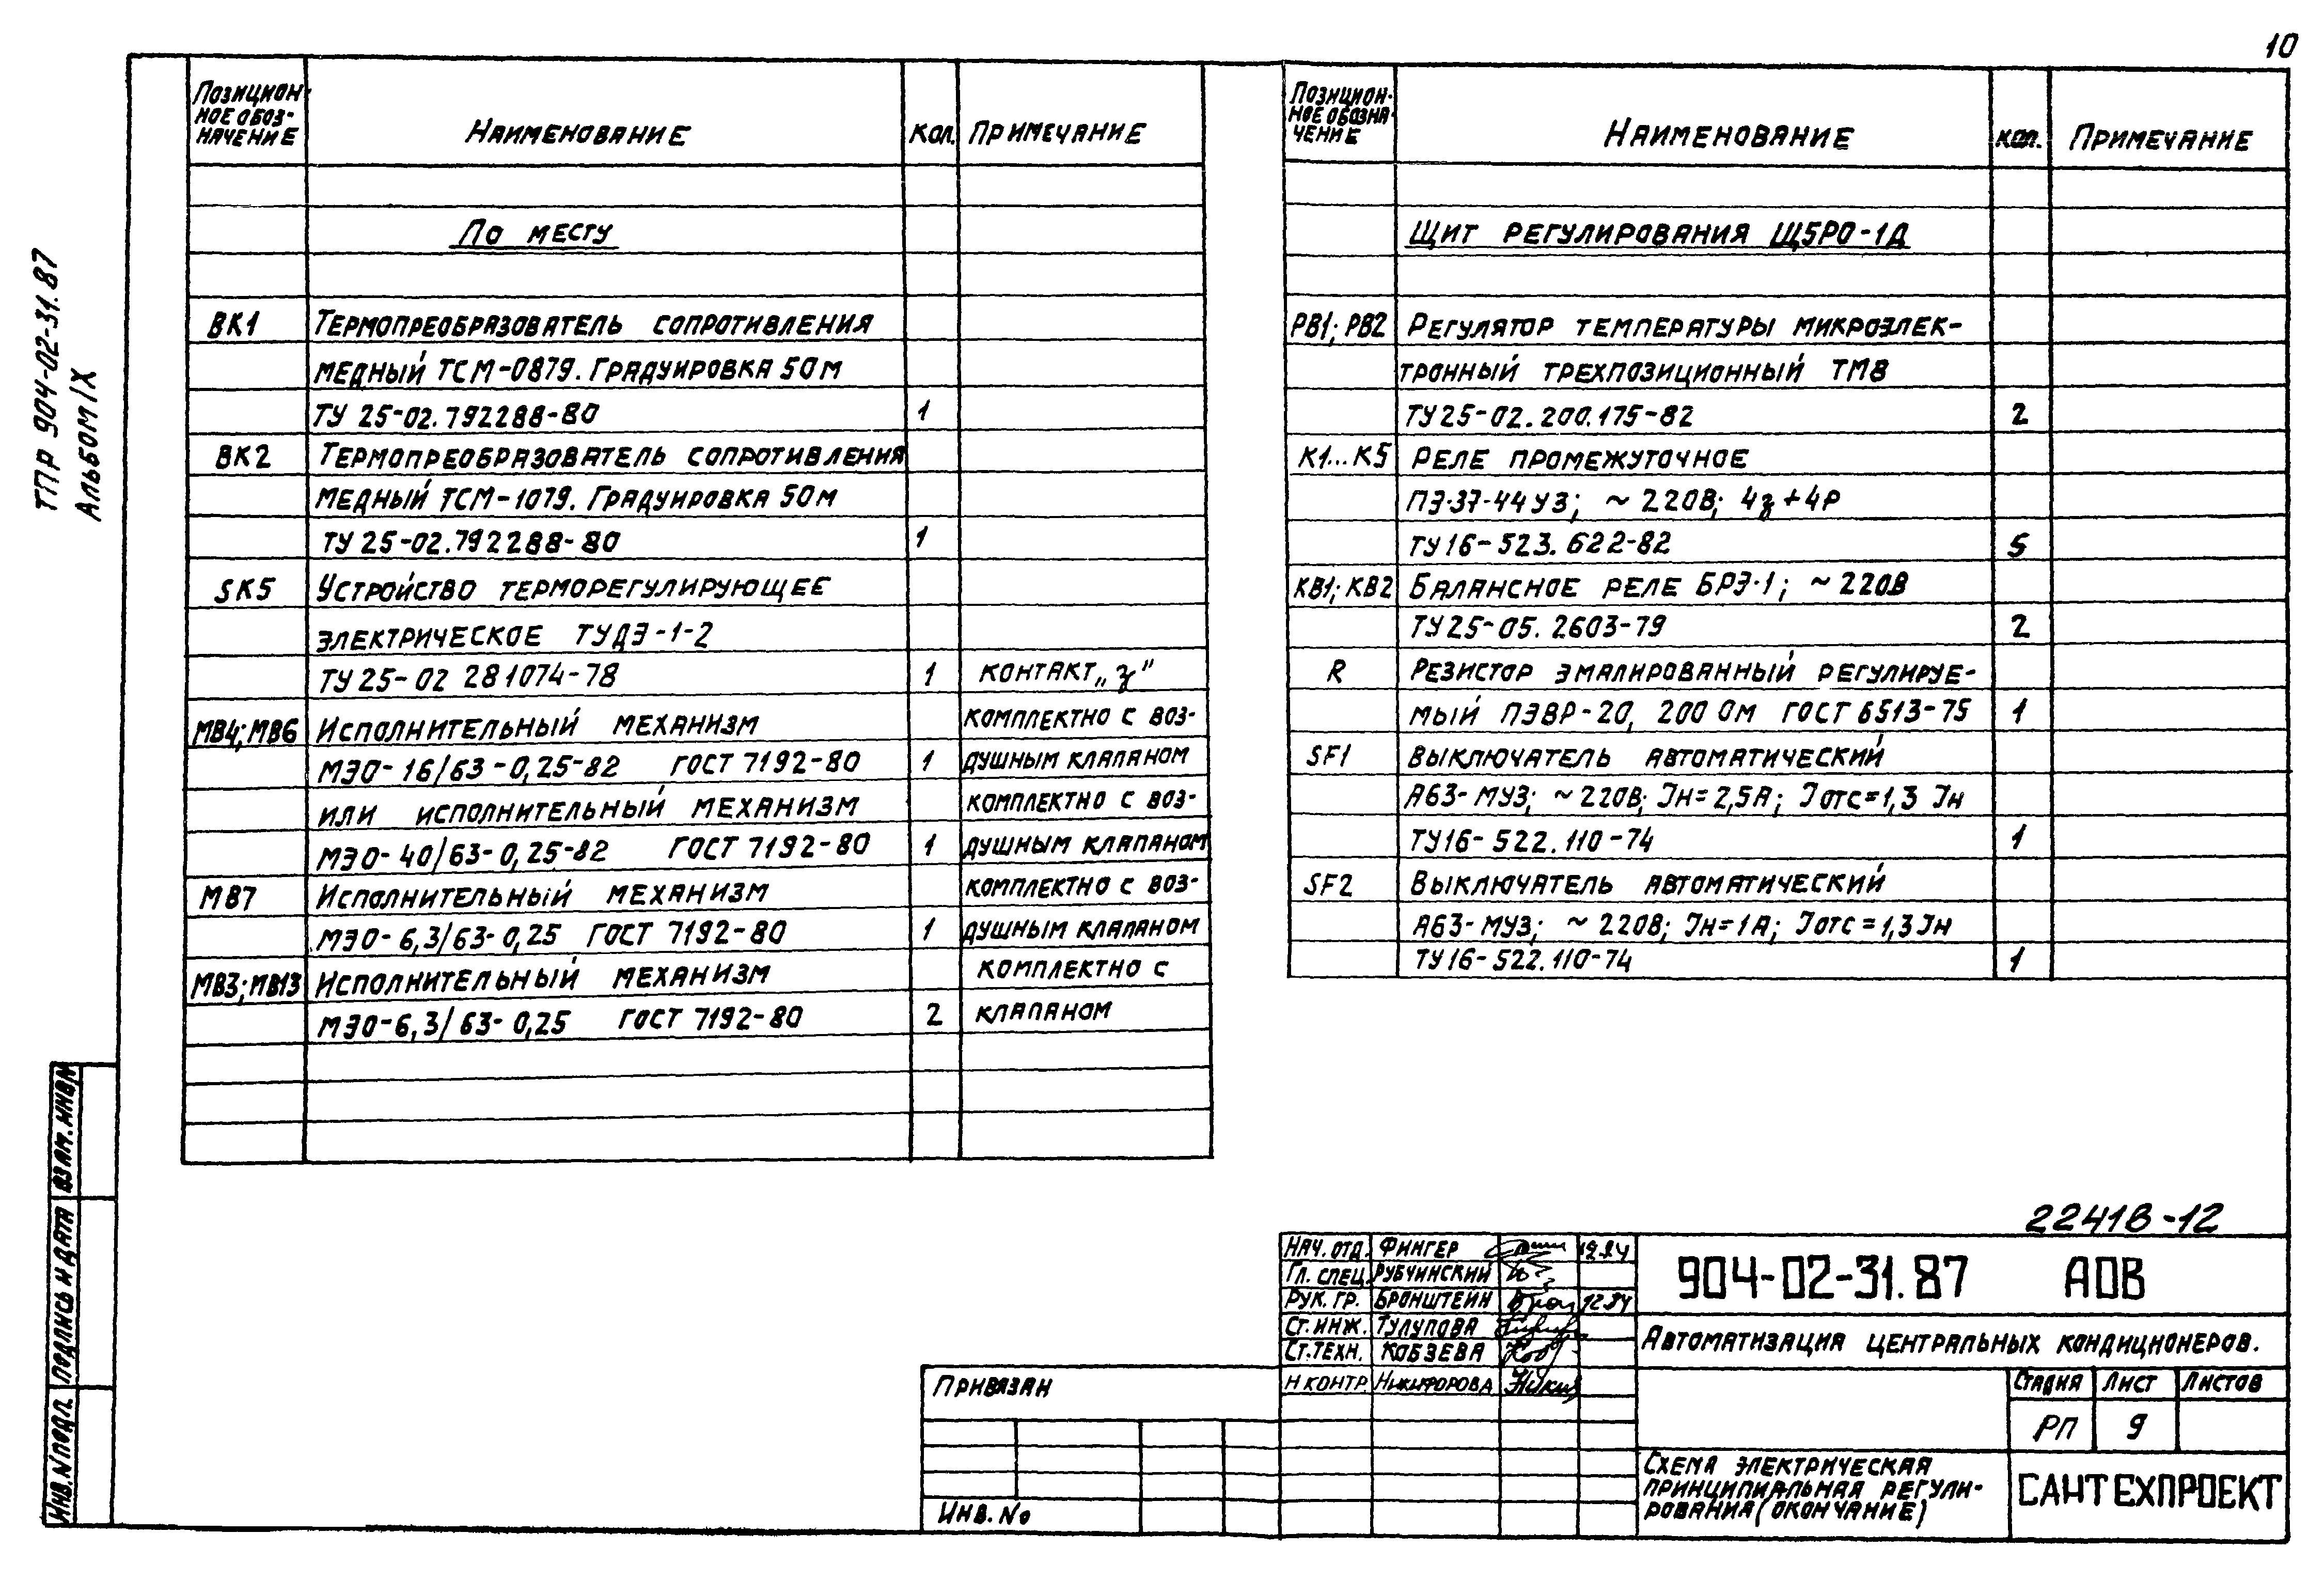 10
ТПР 904-02-31.87
Альбом IX
Позицион-
ное обоз-
начение
Наименование
Кол.
Примечание
По месту
ВК1
Термопреобразователь сопротивления
медный ТСМ-0879. Градуировка 50м
ТУ 25-02.792288-80
1
ВК2
Термопреобразователь сопротивления
медный ТСМ-1079. Градуировка 50м
ТУ 25-02.792288-80
1
SK5
Устройство терморегулирующее
электрическое ТУДЭ-1-2
ТУ 25-02 281074-78
1
контакт „з"
МВ4; МВ6
Исполнительный механизм
комплектно с воз-
МЭО-16/63-0,25-82 ГОСТ 7192-80
1
душным клапаном
или исполнительный механизм
комплектно с воз-
МЭО-40/63-0,25-82 ГОСТ 7192-80
1
душным клапаном
МВ7
Исполнительный механизм
комплектно с воз-
МЭО-6,3/63-0,25 ГОСТ 7192-80
1
душным клапаном
МВ3; МВ13
Исполнительный механизм
комплектно с
МЭО-6,3/63-0,25 ГОСТ 7192-80
2
клапаном
Позицион-
ное обозна-
чение
Наименование
кол.
Примечание
Щит регулирования Щ5РО-1Д
РВ1; РВ2
Регулятор температуры микроэлек-
тронный трехпозиционный ТМ8
ТУ25-02.200.175-82
2
К1...К5
Реле промежуточное
ПЭ-37-44У3; ~220В; 4з+4р
ТУ16-523.622-82
5
КВ1; КВ2
Балансное реле БРЭ-1; ~220В
ТУ25-05.2603-79
2
R
Резистор эмалированный регулируе-
мый ПЭВР-20, 200 Ом ГОСТ 6513-75
1
SF1
Выключатель автоматический
А63-МУ3; ~220В; Jн=2,5А; Jотс=1,3 Jн
ТУ16-522.110-74
1
SF2
Выключатель автоматический
А63-МУ3; ~220В; Jн=1А; Jотс=1,3Jн
ТУ16-522.110-74
1
22418-12
Нач. отд. Фингер 12.84
Гл. спец. Рубчинский
Рук. гр. Бронштейн 12.84
Ст. инж. Тулупова
Ст. техн. Кобзева
Н контр. Никифорова
904-02-31.87 АОВ
Автоматизация центральных кондиционеров.
Стадия Лист Листов
РП 9
Схема электрическая
принципиальная регули-
рования (окончание)
САНТЕХПРОЕКТ
Привязан
Инв. No
Взам. инв.№
Подпись и дата
Инв. N подл.